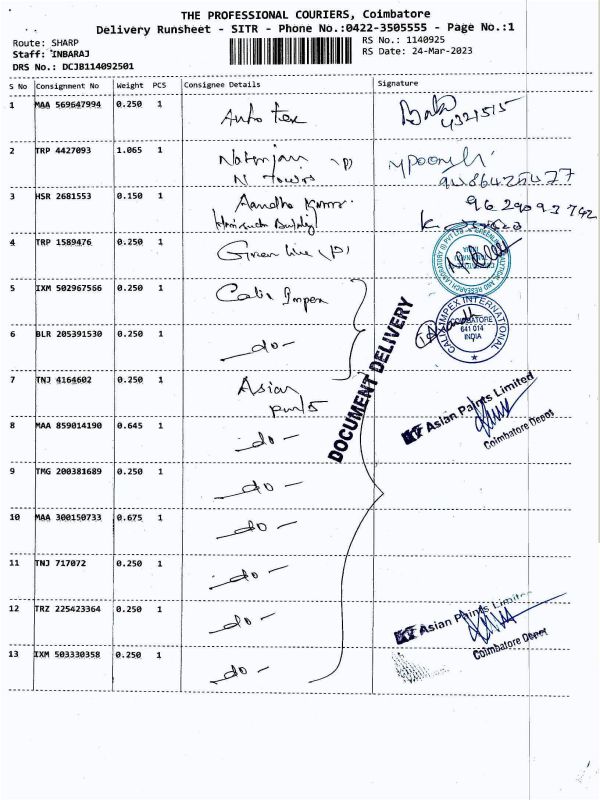 THE PROFESSIONAL COURIERS, Coimbatore
Delivery Runsheet - SITR - Phone No.:0422-3505555 - Page No.:1
Route: SHARP
Staff: INBARAJ
DRS No.: DCJB114092501
RS No.: 1140925
RS Date: 24-Mar-2023
S No Consignment No Weight PCS Consignee Details Signature
1 MAA 569647994 0.250 1 Auto Tex
4321515
2 TRP 4427093 1.065 1 Natarajan (P)
N Towers
3 HSR 2681553 0.150 1 Aandha Kumar
9629093742
4 TRP 1589476 0.250 1 Green line (P)
5 IXM 502967566 0.250 1 Calix Impex
CALIX IMPEX INTERNATIONAL
COIMBATORE
641 014
INDIA
6 BLR 205391530 0.250 1 -do-
DOCUMENT DELIVERY
7 TNJ 4164602 0.250 1 Asian
Asian Paints Limited
Coimbatore Depot
8 MAA 859014190 0.645 1 -do-
9 TMG 200381689 0.250 1 -do-
10 MAA 300150733 0.675 1 -do-
11 TNJ 717072 0.250 1 -do-
12 TRZ 225423364 0.250 1 -do-
Asian Paints Limited
Coimbatore Depot
13 IXM 503330358 0.250 1 -do-